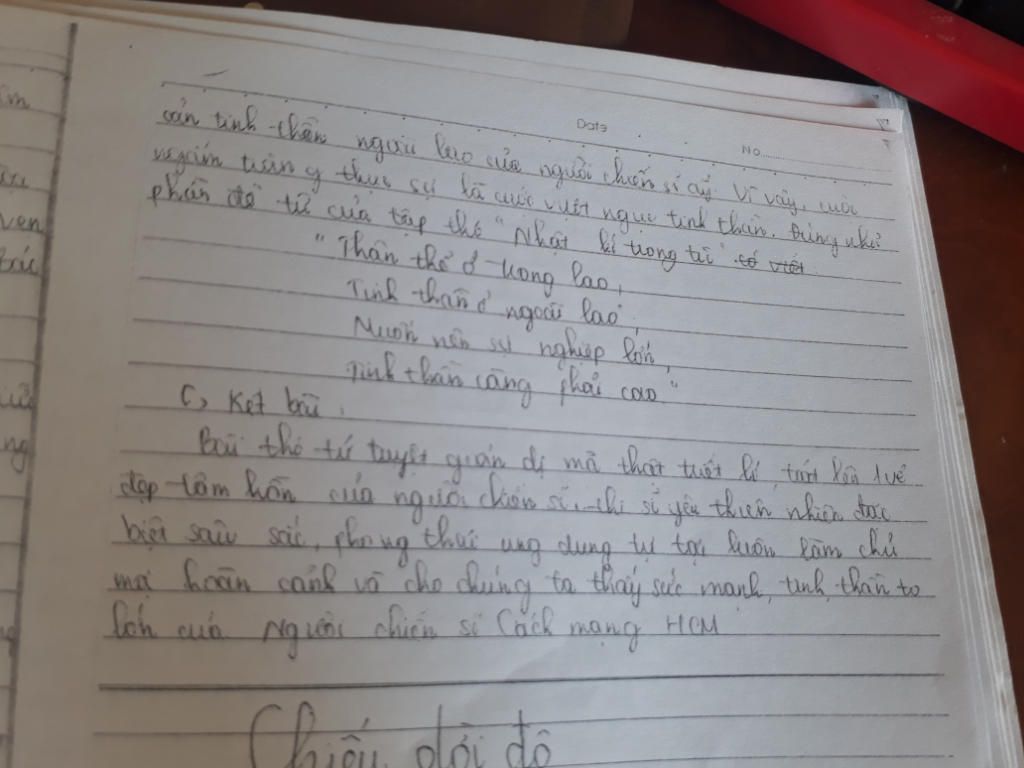 Date
No
cản tinh thần ngoài lao của người chiến sĩ ấy. Vì vậy, cuộc
ngắm trăng thực sự là cuộc vượt ngục tinh thần. Đúng như
phần đề từ của tập thơ "Nhật kí trong tù" có viết
"Thân thể ở trong lao,
Tinh thần ở ngoài lao,
Muốn nên sự nghiệp lớn,
Tinh thần càng phải cao"
C, Kết bài.
Bài thơ tứ tuyệt giản dị mà thật tuyệt, lên 1 vẻ
đẹp tâm hồn của người chiến sĩ, thi sĩ yêu thiên nhiên đặc
biệt sâu sắc, phong thái ung dung tự tại luôn làm chủ
mọi hoàn cảnh và cho chúng ta thấy sức mạnh, tinh thần to
lớn của Người chiến sĩ Cách mạng HCM
Chiếu dời đô
ven
Bác
ng